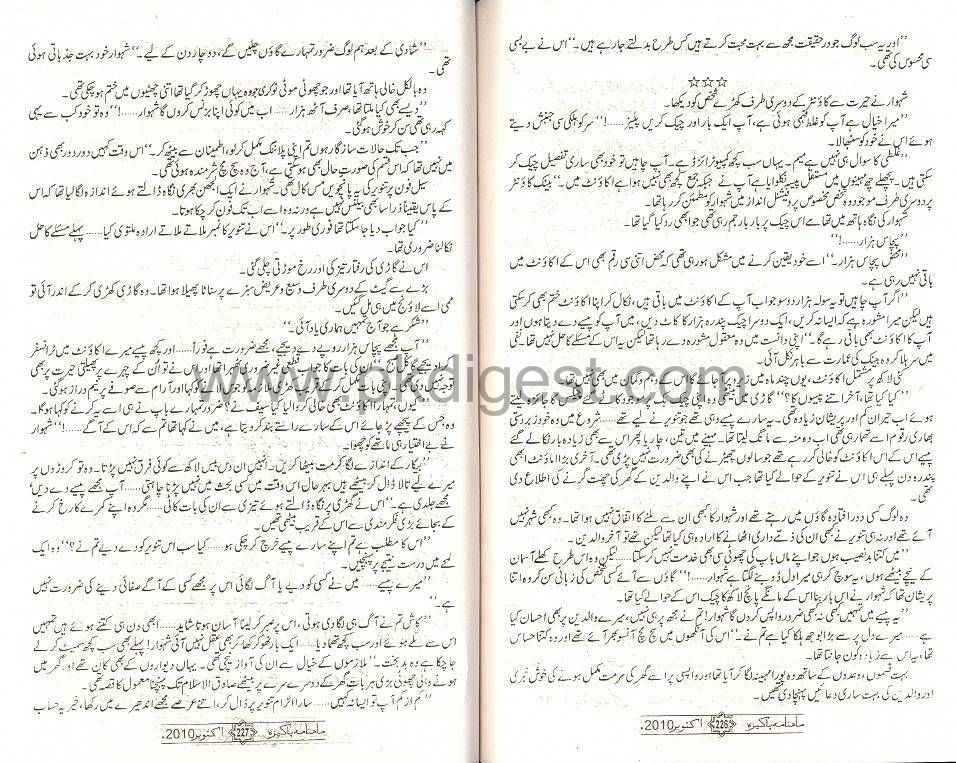 "اور یہ سب لوگ جو درحقیقت مجھ سے بہت محبت کرتے ہیں کس طرح بدلتے جا رہے ہیں۔" اس نے بے بسی
سی محسوس کی تھی۔
☆☆☆
شہوار نے حیرت سے کاؤنٹر کے دوسری طرف کھڑے شخص کو دیکھا۔
"میرا خیال ہے آپ کو غلط فہمی ہوئی ہے، آپ ایک بار اور چیک کریں پلیز......!" سر کو ہلکی سی جنبش دیتے
ہوئے اس نے خود کو سنبھالا۔
"غلطی کا سوال ہی نہیں ہے میم۔ یہاں سب کچھ کمپیوٹرائزڈ ہے۔ آپ چاہیں تو خود بھی ساری تفصیل چیک کر
سکتی ہیں۔ پچھلے چھ مہینوں میں مستقل پیسہ نکلوایا ہے آپ نے جبکہ جمع کچھ بھی نہیں ہوا ہے اکاؤنٹ میں۔" بینک کاؤنٹر
پر دوسری طرف موجود وہ شخص مخصوص پروفیشنل انداز میں شہوار کو مطمئن کر رہا تھا۔
شہوار کی نگاہ ہاتھ میں تھامے اس چیک پر بار بار جم رہی تھی جو ابھی رد کیا گیا تھا۔
"پچاس ہزار......!"
"محض پچاس ہزار۔" اسے خود یقین کرنے میں مشکل ہو رہی تھی کہ محض اتنی سی رقم بھی اس کے اکاؤنٹ میں
باقی نہیں رہی ہے۔
"اگر آپ چاہیں تو یہ سولہ ہزار دو سو جو اب آپ کے اکاؤنٹ میں باقی ہیں، نکال کر اپنا اکاؤنٹ ختم بھی کر سکتی
ہیں لیکن میرا مشورہ ہے کہ ایسا نہ کریں، ایک دوسرا چیک پندرہ ہزار کا کاٹ دیں، میں آپ کو پیسے دے دیتا ہوں اور
آپ کا اکاؤنٹ بھی باقی رہے گا۔" اپنی دانست میں وہ معقول مشورہ دے رہا تھا لیکن یہ اس کے مسئلے کا حل نہیں تھا نفی
میں سر ہلا کر وہ بینک کی عمارت سے باہر نکل آئی۔
کئی لاکھ پر مشتمل اکاؤنٹ، یوں چند ماہ میں زیرو ہو جائے گا اس کے وہم و گمان میں بھی نہیں تھا۔
"کیا کیا تھا، آخر اتنے پیسوں کا؟" گاڑی میں بیٹھی
بھاری رقوم اسے تھما رہی تھی اب وہ منہ سے مانگ لیتا تھا۔ مہینے میں تین، چار یا پھر اس سے بھی زیادہ بار نکالے گئے
پیسے اس کے اس اکاؤنٹ کو خالی کر رہے تھے جو سالوں چھیڑنے کی بھی ضرورت نہیں پڑی تھی۔ آخری بڑا اماؤنٹ ابھی
پندرہ دن پہلے ہی اس نے تنویر کے حوالے کیا تھا جب اس نے اپنے والدین کے گھر کی چھت گرنے کی اطلاع دی
تھی۔
وہ لوگ کسی دور افتادہ گاؤں میں رہتے تھے اور شہوار کا کبھی ان سے ملنے کا اتفاق نہیں ہوا تھا۔ وہ کبھی شہر نہیں
آئے تھے اور نہ ہی تنویر نے کبھی ان کی ذمے داری اٹھانے کا ارادہ ہی کیا تھا لیکن تھے تو آخر والدین۔
"میں کتنا بدنصیب ہوں جو اپنے ماں باپ کی چھوٹی سی بھی خدمت نہیں کر سکتا، لیکن وہ اس طرح کھلے آسمان
کے نیچے بیٹھے ہوں، یہ سوچ کر ہی میرا دل ڈوبنے لگتا ہے شہوار......!" گاؤں سے آئے کسی شخص کی زبانی سن کر وہ اتنا
پریشان تھا کہ شہوار نے اس بار بنا اس کے مانگے پانچ لاکھ کا چیک اس کے حوالے کیا تھا۔
"یہ پیسے میں تمہیں کبھی نہ کبھی ضرور واپس کروں گا شہوار! تم نے مجھ پر ہی نہیں، میرے والدین پر بھی احسان کیا
ہے...... میرے دل پر سے بڑا بوجھ ہلکا کیا ہے تم نے۔" اس کی آنکھوں میں سچ مچ آنسو بھر آئے تھے اور وہ کتنا حساس
تھا، یہ اس سے زیادہ کون جانتا تھا۔
بہت قسموں، وعدوں کے ساتھ وہ پورا مہینہ لگا کر آیا تھا اور واپسی پر اسے گھر کی مرمت مکمل ہونے کی خوش خبری
اور والدین کی بہت ساری دعائیں پہنچا دی تھیں۔
ماہنامہ پاکیزہ 226 اکتوبر 2010ء
"شادی کے بعد ہم لوگ ضرور تمہارے گاؤں چلیں گے، دو چار دن کے لیے۔" شہوار خود بہت جذباتی ہوئی
تھی۔
وہ بالکل خالی ہاتھ آیا تھا اور جو چھوٹی موٹی نوکری جو وہ یہاں چھوڑ کر گیا تھا اتنی چھٹیوں میں ختم ہو چکی تھی۔
"ویسے بھی کیا ملتا تھا، صرف آٹھ ہزار...... اب میں کوئی اپنا بزنس کروں گا شہوار......!" وہ تو خود کب سے یہی
کہہ رہی تھی سن کر خوش ہو گئی۔
"جب تک حالات سازگار ہوں تم اپنی پلاننگ مکمل کر لو، اطمینان سے بیٹھ کر۔" اس وقت کہیں دور دور بھی ذہن
میں نہیں تھا کہ اس قسم کی صورت حال بھی ہو سکتی ہے، آج وہ سچ مچ شرمندہ ہوئی تھی۔
سیل فون پر تنویر کی یہ پانچویں مس کال تھی۔ شہوار نے ایک الجھن بھری نگاہ ڈالتے ہوئے اندازہ لگا لیا تھا کہ اس
کے پاس یقیناً ذرا سا بھی بیلنس نہیں ہے ورنہ وہ اسے اب تک فون کر چکا ہوتا۔
"کیا جواب دیا جا سکتا تھا فوری طور پر۔" اس نے تنویر کا نمبر ملاتے ملاتے ارادہ ملتوی کیا...... پہلے مسئلے کا حل
نکالنا ضروری تھا۔
اس نے گاڑی کی رفتار تیز کی اور رخ موڑتی چلی گئی۔
بڑے سے گیٹ کے دوسری طرف وسیع و عریض سبزے پر سناٹا پھیلا ہوا تھا۔ وہ گاڑی کھڑی کر کے اندر آئی تو
ممی اسے لاؤنج میں ہی مل گئیں۔
"شکر ہے جو آج تمہیں ہماری یاد آئی۔"
"آپ مجھے پچاس ہزار روپے دے دیجیے، مجھے ضرورت ہے فوراً...... اور کچھ پیسے میرے اکاؤنٹ میں ٹرانسفر
وہ جس کے پیچھے پڑ جائے اس کے سارے راستے بند کر دیتا ہے، میں نے کہا تھا تم سے کہ اس کے آگے......!" شہوار
نے بے اختیار ہی ماتھے کو چھوا۔
"بیکار کے اندازے لگا کر مت بیٹھا کریں۔ انہیں ان دس بیس لاکھ سے کوئی فرق نہیں پڑتا۔ وہ تو کروڑوں پر
میرے لیے تالا ڈال کر بیٹھے ہیں بہر حال اس وقت میں کسی بحث میں نہیں پڑنا چاہتی...... آپ مجھے پیسے دے دیں'
مجھے جلدی ہے۔" اس نے گھڑی پر نگاہ ڈالتے ہوئے تیزی سے ان کی بات کاٹی...... مگر وہ اپنے کمرے کا رخ کرنے
کے بجائے بڑی فکر مندی سے اس کے قریب بیٹھی تھیں۔
"اس کا مطلب ہے تم اپنے سارے پیسے خرچ کر چکی ہو...... کیا سب اس تنویر کو دے دیے تم نے؟" وہ ایک
لمحے میں درست نتیجے پر پہنچیں۔
"میرے پیسے...... میں نے کسی کو دیے یا آگ لگائی اس پر مجھے کسی کے آگے صفائی دینے کی ضرورت نہیں
ہے۔"
"کاش تم نے آگ ہی لگا دی ہوتی، اس پر صبر کر لینا آسان ہوتا شاید...... ابھی دن ہی کتنے ہوئے ہیں تمہیں
اس سے ملے ہوئے اور سب کچھ تھما دیا...... ایک بار ٹھوکر کھا کر بھی عقل نہیں آئی شہوار! پہلے بھی سب کچھ سمیٹ کر لے
جا چکا ہے وہ بدبخت۔" ملازموں کے خیال سے ان کی آواز نیچی تھی۔ یہاں دیواروں کے بھی کان تھے اور گھر میں
ہونے والی چھوٹی بڑی ہر بات گھر کے دوسرے سرے پر بیٹھے صادق الاسلام تک پہنچنا معمول کا قصہ تھا۔
"کم از کم آپ تو ایسا نہ کہیں...... سارا الزام تنویر پر ڈال کر، اتنے عرصے مجھے اندھیرے میں رکھا، خیر یہ حساب
ماہنامہ پاکیزہ 227 اکتوبر 2010ء
www.pkdigest.com